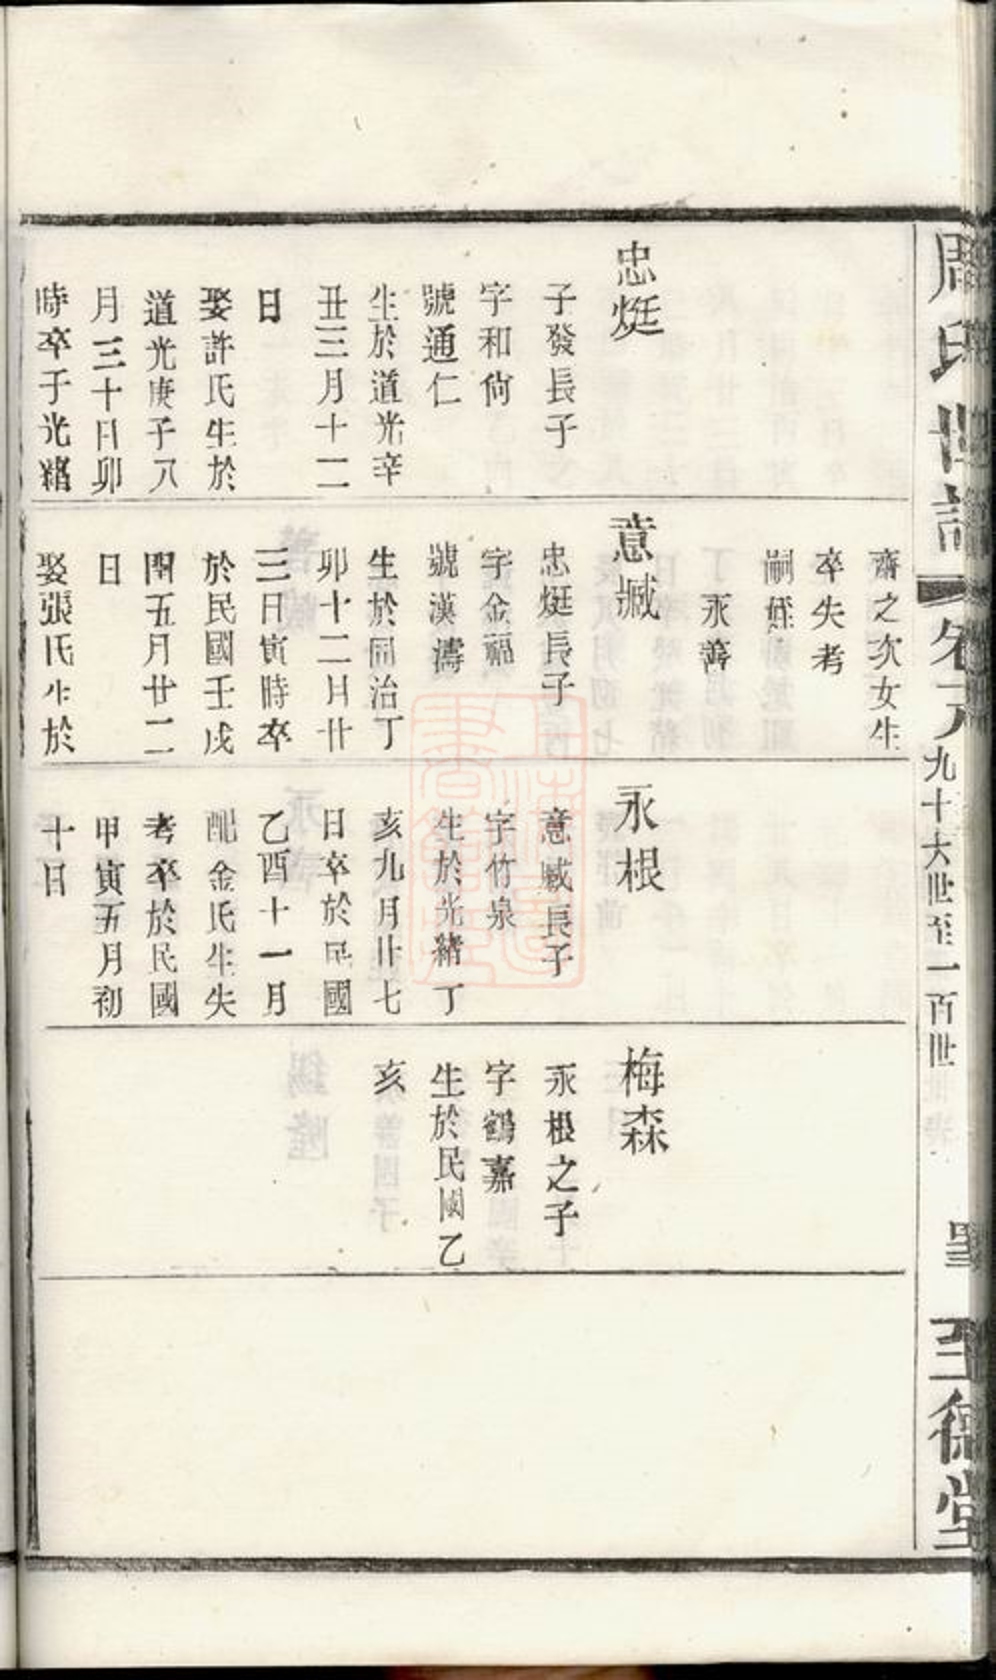 周氏世譜
卷
九十六世至一百世
至德堂
忠烶
子發長子
字和尙
號通仁
生於道光辛
丑三月十二
日
娶許氏生於
道光庚子八
月三十日卯
時卒于光緒
齋之次女生
卒失考
嗣姪
永善
意臧
忠烶長子
字金福
號漢濤
生於同治丁
卯十二月廿
三日寅時卒
於民國壬戌
閏五月廿二
日
娶張氏生於
永根
意臧長子
字竹泉
生於光緒丁
亥九月廿七
日卒於民國
乙酉十一月
配金氏生失
考卒於民國
甲寅五月初
十日
梅森
永根之子
字鶴嘉
生於民國乙
亥